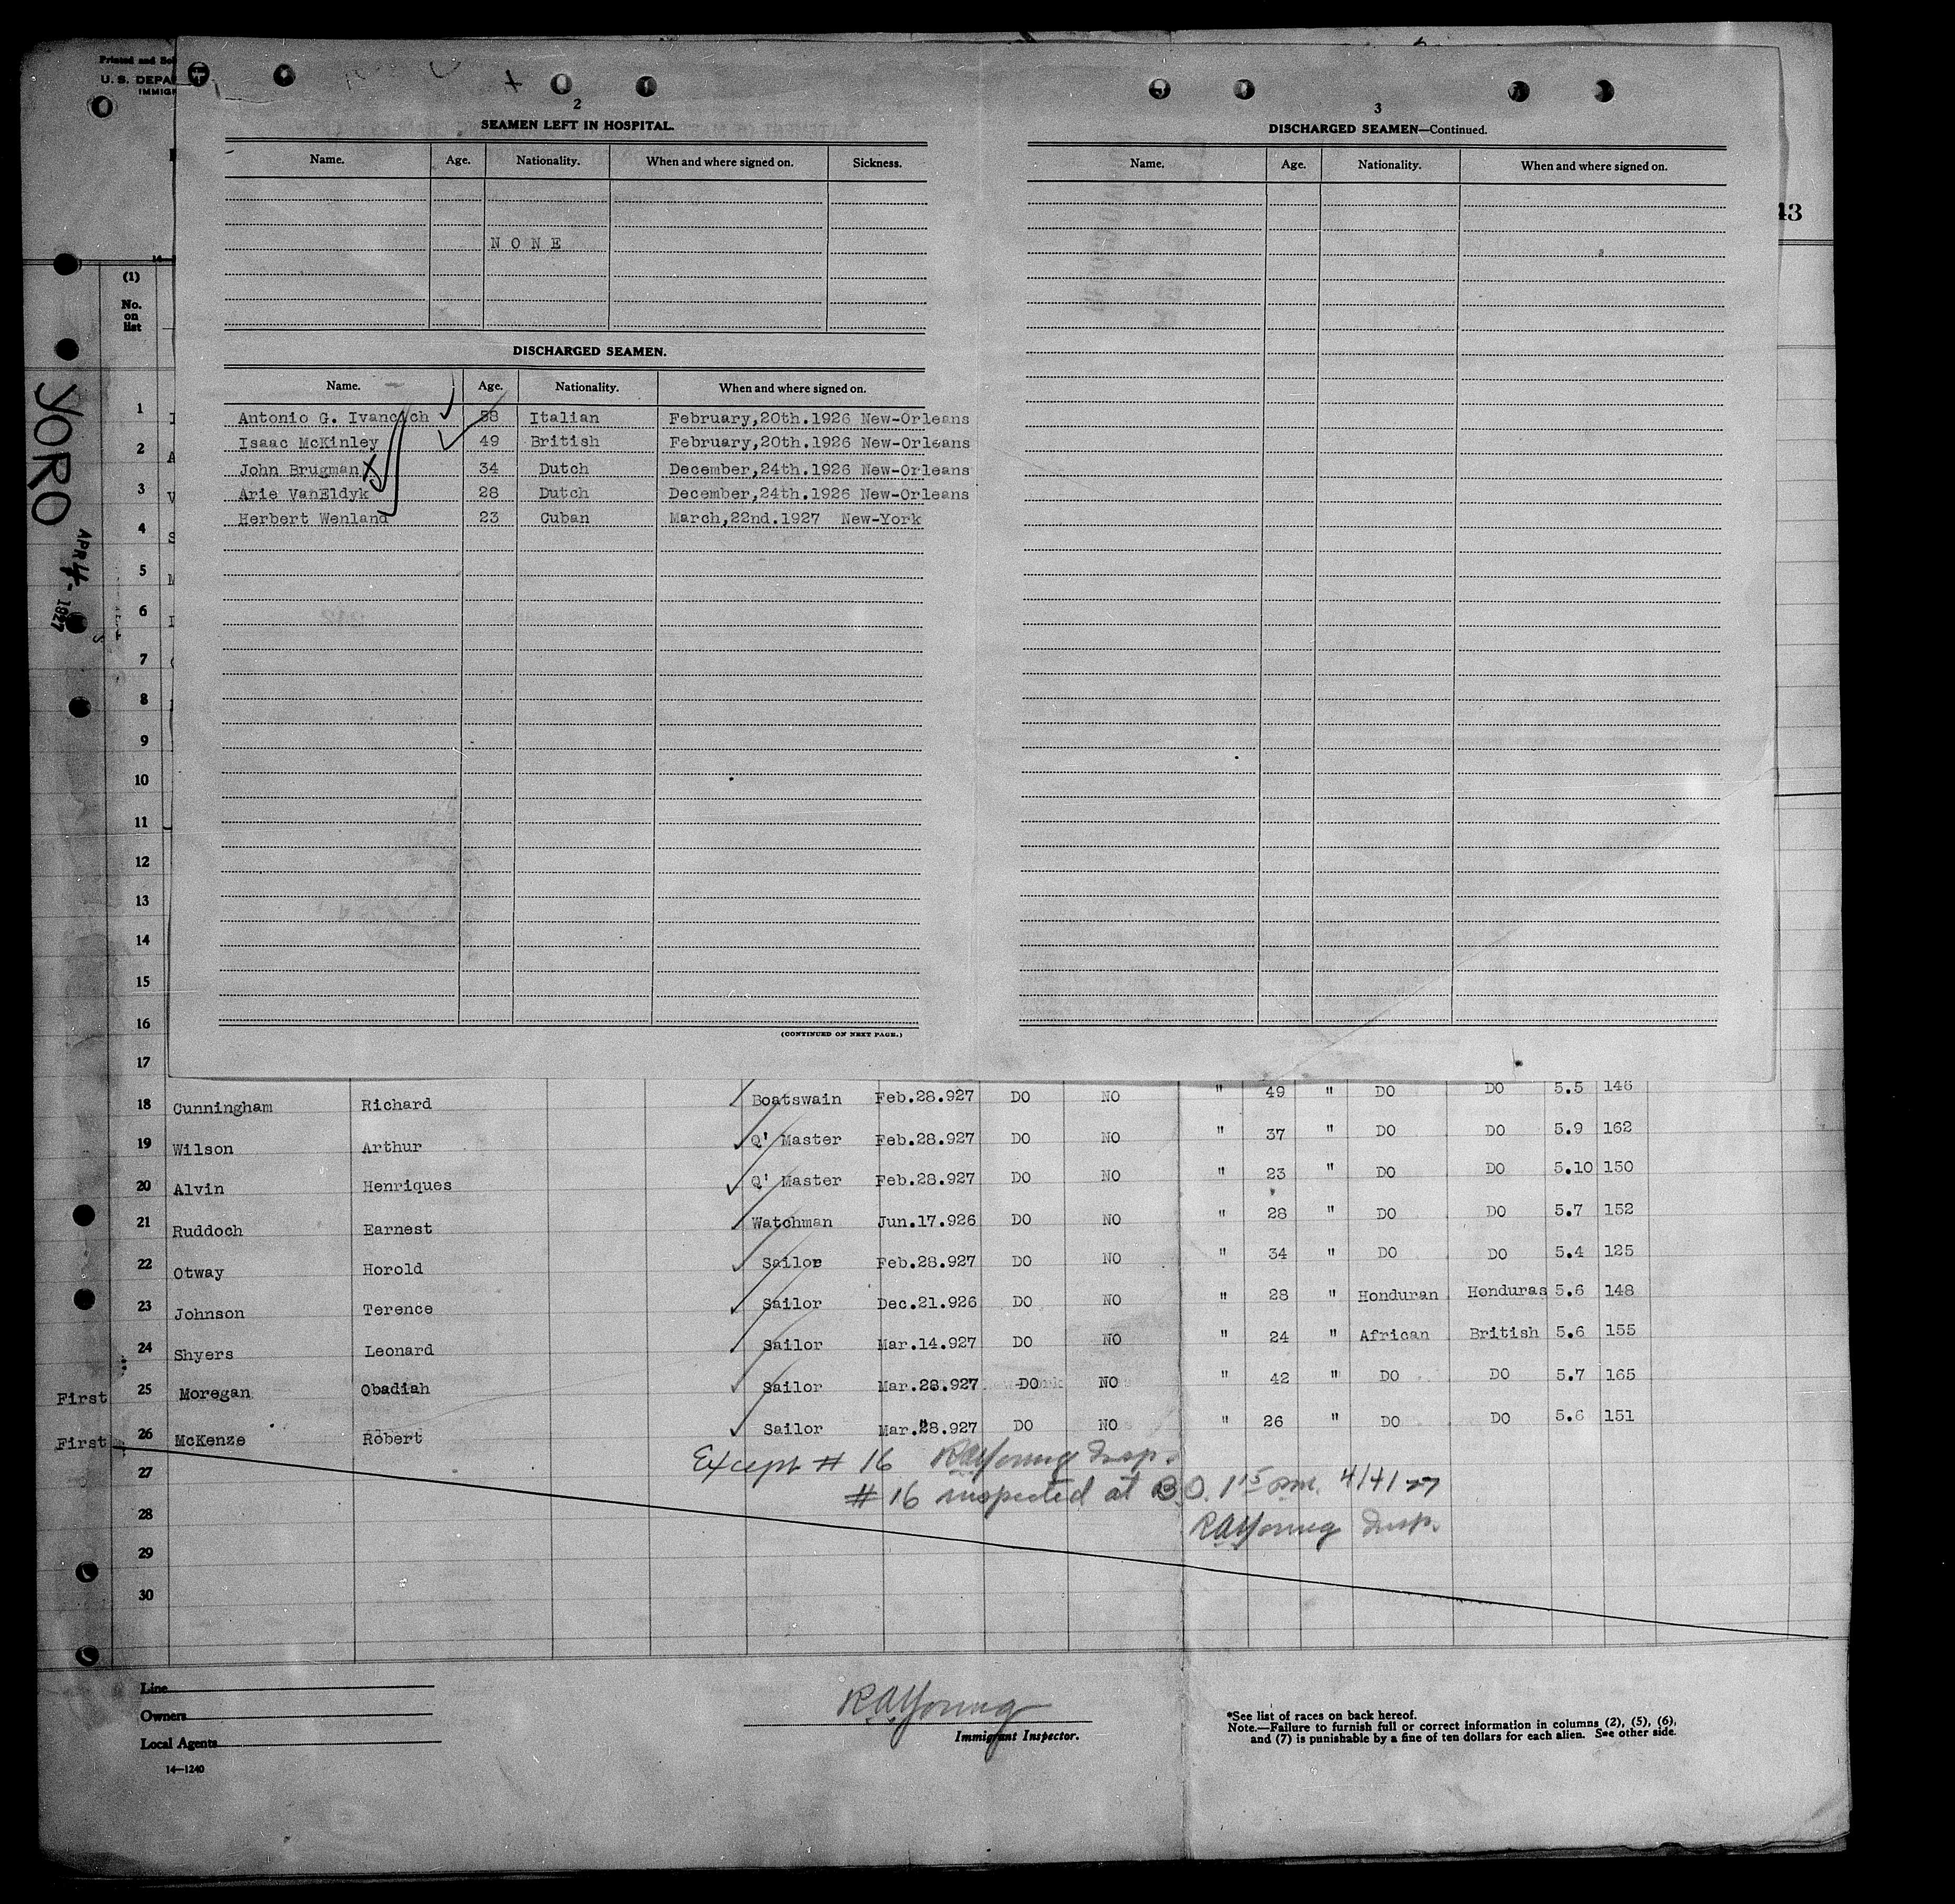 Printed and
U. S. DEPA
IMMIG
2
SEAMEN LEFT IN HOSPITAL.
Name. Age. Nationality. When and where signed on. Sickness.
NONE
DISCHARGED SEAMEN.
Name. Age. Nationality. When and where signed on.
Antonio G. Ivancich 38 Italian February,20th.1926 New-Orleans
Isaac McKinley 49 British February,20th.1926 New-Orleans
John Brugman X 34 Dutch December,24th.1926 New-Orleans
Arie VanEldyk 28 Dutch December,24th.1926 New-Orleans
Herbert Wenland 23 Cuban March,22nd.1927 New-York
(CONTINUED ON NEXT PAGE.)
3
DISCHARGED SEAMEN—Continued.
Name. Age. Nationality. When and where signed on.
43
(1)
No.
on
list
YORO
APR 4 - 1927
1
2
3
4
5
6
7
8
9
10
11
12
13
14
15
16
17
18 Cunningham Richard Boatswain Feb.28.927 DO NO " 49 " DO DO 5.5 146
19 Wilson Arthur Q' Master Feb.28.927 DO NO " 37 " DO DO 5.9 162
20 Alvin Henriques Q' Master Feb.28.927 DO NO " 23 " DO DO 5.10 150
21 Ruddoch Earnest Watchman Jun.17.926 DO NO " 28 " DO DO 5.7 152
22 Otway Horold Sailor Feb.28.927 DO NO " 34 " DO DO 5.4 125
23 Johnson Terence Sailor Dec.21.926 DO NO " 28 " Honduran Honduras 5.6 148
24 Shyers Leonard Sailor Mar.14.927 DO NO " 24 " African British 5.6 155
First 25 Moregan Obadiah Sailor Mar.28.927 DO NO " 42 " DO DO 5.7 165
First 26 McKenze Robert Sailor Mar.28.927 DO NO " 26 " DO DO 5.6 151
Except # 16 RAYoung Insp.
27
# 16 inspected at B.O. 1 15 pm. 4/4/27
28
RAYoung Insp.
29
30
Line
Owners
Local Agents
14—1240
RAYoung
Immigrant Inspector.
*See list of races on back hereof.
Note.—Failure to furnish full or correct information in columns (2), (5), (6),
and (7) is punishable by a fine of ten dollars for each alien. See other side.